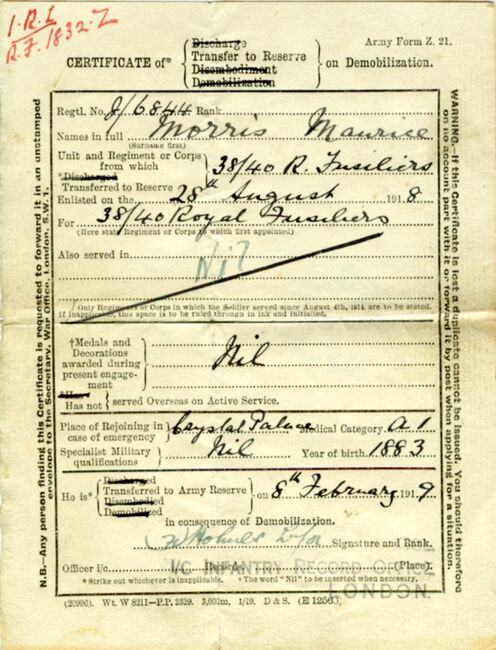 1.R.L
R.F. 1832.Z
Army Form Z. 21.
CERTIFICATE of*
Discharge
Transfer to Reserve
Disembodiment
Demobilization
on Demobilization.
Regtl. No. J/6844 Rank
Names in full Morris Maurice
(Surname first)
Unit and Regiment or Corps
from which
*Discharged
Transferred to Reserve
38/40 R. Fusiliers
Enlisted on the 28th August 1918
For 38/40 Royal Fusiliers
(Here state Regiment or Corps to which first appointed)
Also served in
Nil
Only Regiments or Corps in which the Soldier served since August 4th, 1914 are to be stated.
If inapplicable, this space is to be ruled through in ink and initialled.
†Medals and
Decorations
awarded during
present engage-
ment
Nil
Has
Has not
served Overseas on Active Service.
Place of Rejoining in
case of emergency
Crystal Palace Medical Category A 1
Specialist Military
qualifications
Nil Year of birth 1883
He is*
Discharged
Transferred to Army Reserve
Disembodied
Demobilized
on 8th February 1919
in consequence of Demobilization.
Signature and Rank.
Officer i/c Records (Place).
I/C INFANTRY RECORD OFFICE
LONDON.
* Strike out whichever is inapplicable. † The word "Nil" to be inserted when necessary.
(20996). Wt. W 8211—P.P. 2329. 3,000m. 1/19. D & S. (E 1256.)
N.B.—Any person finding this Certificate is requested to forward it in an unstamped
envelope to the Secretary, War Office, London, S.W. 1.
WARNING.—If this Certificate is lost a duplicate cannot be issued. You should therefore
on no account part with it or forward it by post when applying for a situation.